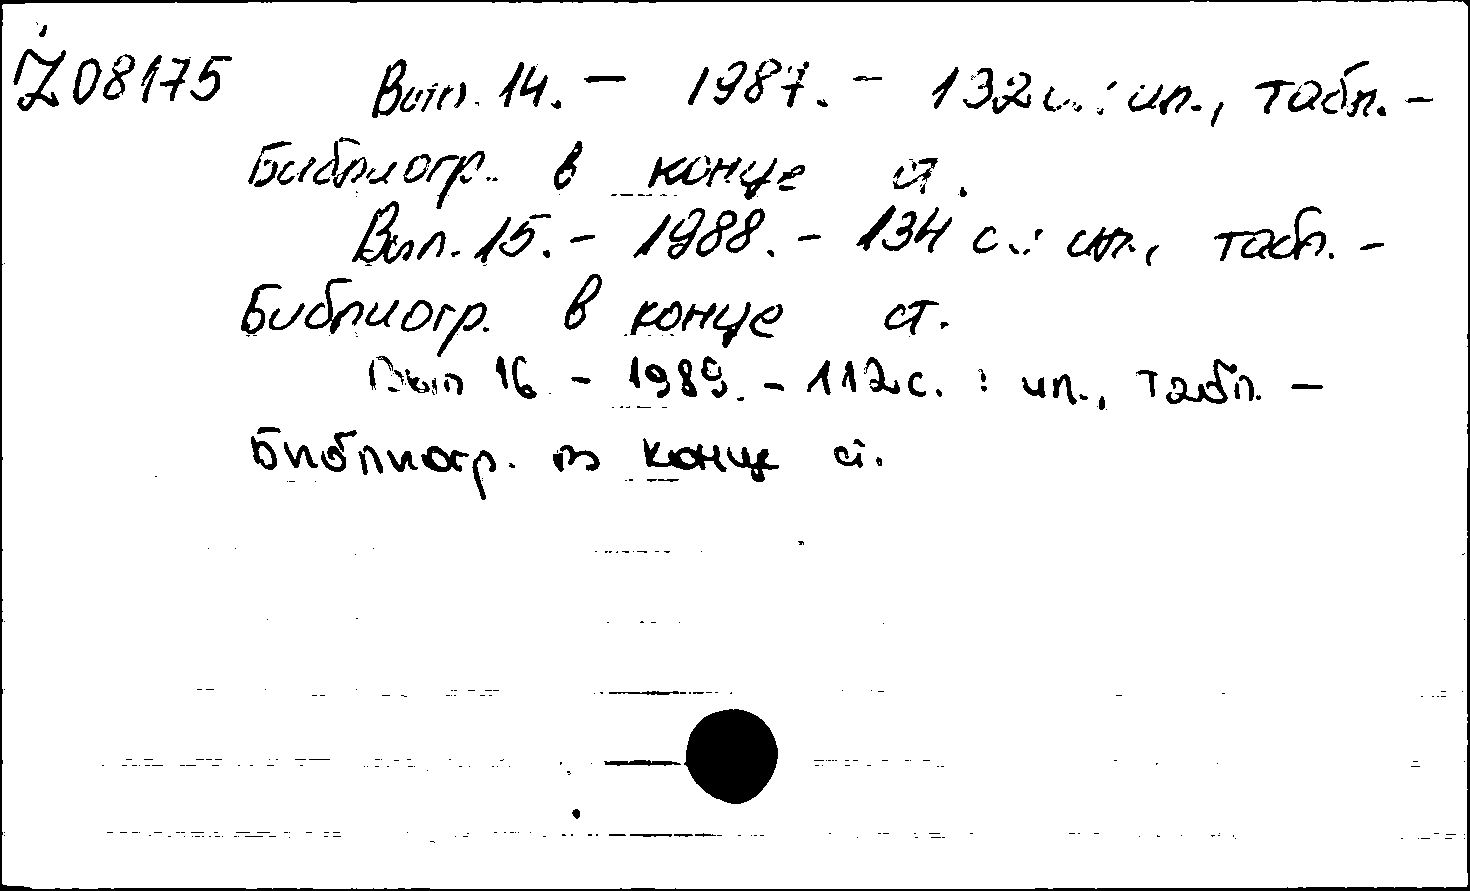 Z08175 Вып. 14. – 1987. – 132 с. : ил., табл. –
Библиогр. в конце ст.
Вып. 15. – 1988. – 134 с. : ил., табл. –
Библиогр. в конце ст.
Вып 16 – 1989. – 112 с. : ил., табл. –
Библиогр. в конце ст.